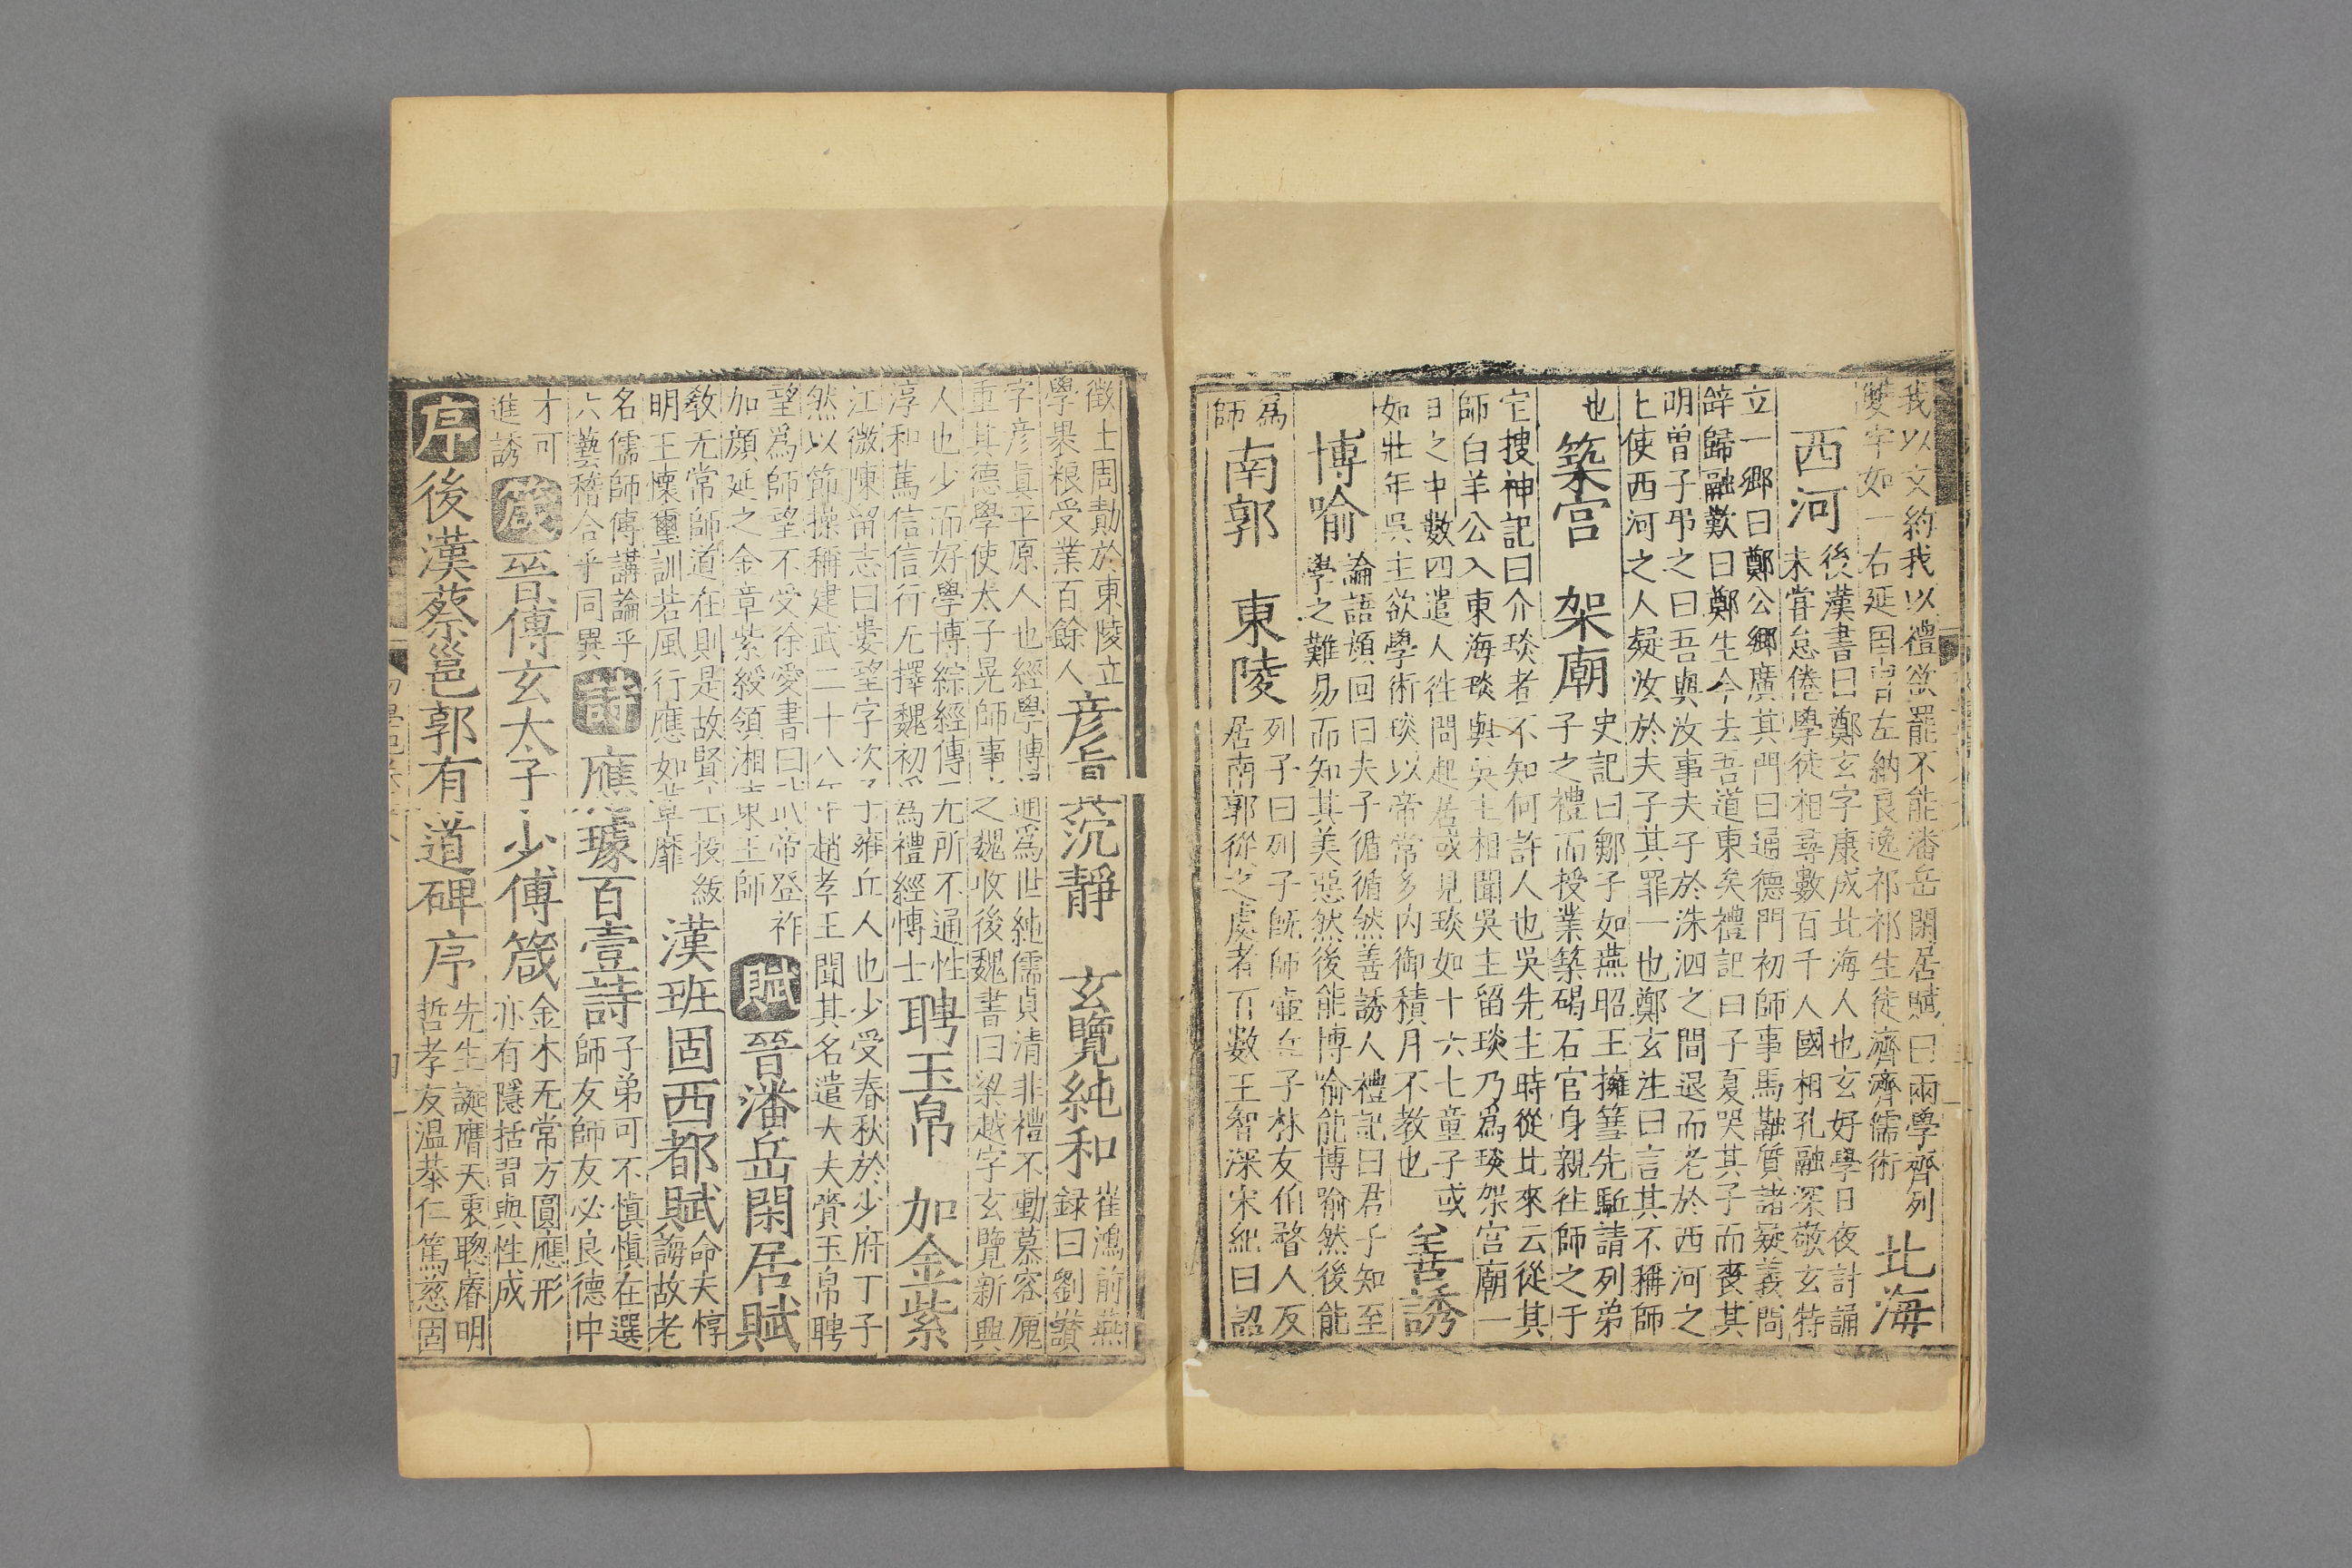 我以文約我以禮欲罷不能潘岳閑居賦曰兩學齊列
雙宇如一右延國冑左納良逸祁祁生徒濟濟儒術
北海
西河
後漢書曰鄭玄字康成北海人也玄好學日夜討誦
未甞怠倦學徒相尋數百千人國相孔融深敬玄特
立一鄉曰鄭公鄉廣其門曰通德門初師事馬融質諸疑義問
辭歸融歎曰鄭生今去吾道東矣禮記曰子夏哭其子而喪其
明曾子弔之曰吾與汝事夫子於洙泗之間退而老於西河之
上使西河之人疑汝於夫子其罪一也鄭玄注曰言其不稱師
也
築宫 架廟
史記曰鄒子如燕昭王擁篲先駈請列弟
子之禮而授業築碣石宫身親往師之于
宝搜神記曰介琰者不知何許人也吳先主時從北來云從其
師白羊公入東海琰與吳主相聞吳主留琰乃爲琰架宫廟一
日之中數四遣人往問起居或見琰如十六七童子或
如壯年吳主欲學術琰以帝常多内御積月不教也
善誘
博喻
論語顏回曰夫子循循然善誘人禮記曰君子知至
學之難易而知其美惡然後能博喻能博喻然後能
爲
師
南郭 東陵
列子曰列子旣師壷丘子林友伯瞀人反
居南郭從之處者百數王智深宋紀曰詔
徵士周勛於東陵立
學果粮受業百餘人
彦眞 沉靜 玄覽純和
崔鴻前燕
録曰劉讚
字彦眞平原人也經學博通爲世純儒貞清非禮不動慕容廆
重其德學使太子晃師事之魏收後魏書曰梁越字玄覽新興
人也少而好學博綜經傳无所不通性
淳和篤信信行无擇魏初爲禮經博士
聘玉帛 加金紫
江微陳留志曰婁望字次子雍丘人也少受春秋於少府丁子
然以節操稱建武二十八年趙孝王聞其名遣大夫賫玉帛聘
望爲師望不受徐爰書曰武帝登祚
加顔延之金章紫綬領湘東王師
賦
晉潘岳閑居賦
教无常師道在則是故賢士投紱
明王懷璽訓若風行應如草靡
漢班固西都賦
命夫惇
誨故老
名儒師傅講論乎
六藝稽合乎同異
詩
應璩百壹詩
子弟可不慎慎在選
師友師友必良德中
才可
進誘
箴
晉傅玄太子少傅箴
金木无常方圓應形
亦有隱括習與性成
序
後漢蔡邕郭有道碑序
先生誕膺天衷聦睿明
哲孝友温恭仁篤慈固